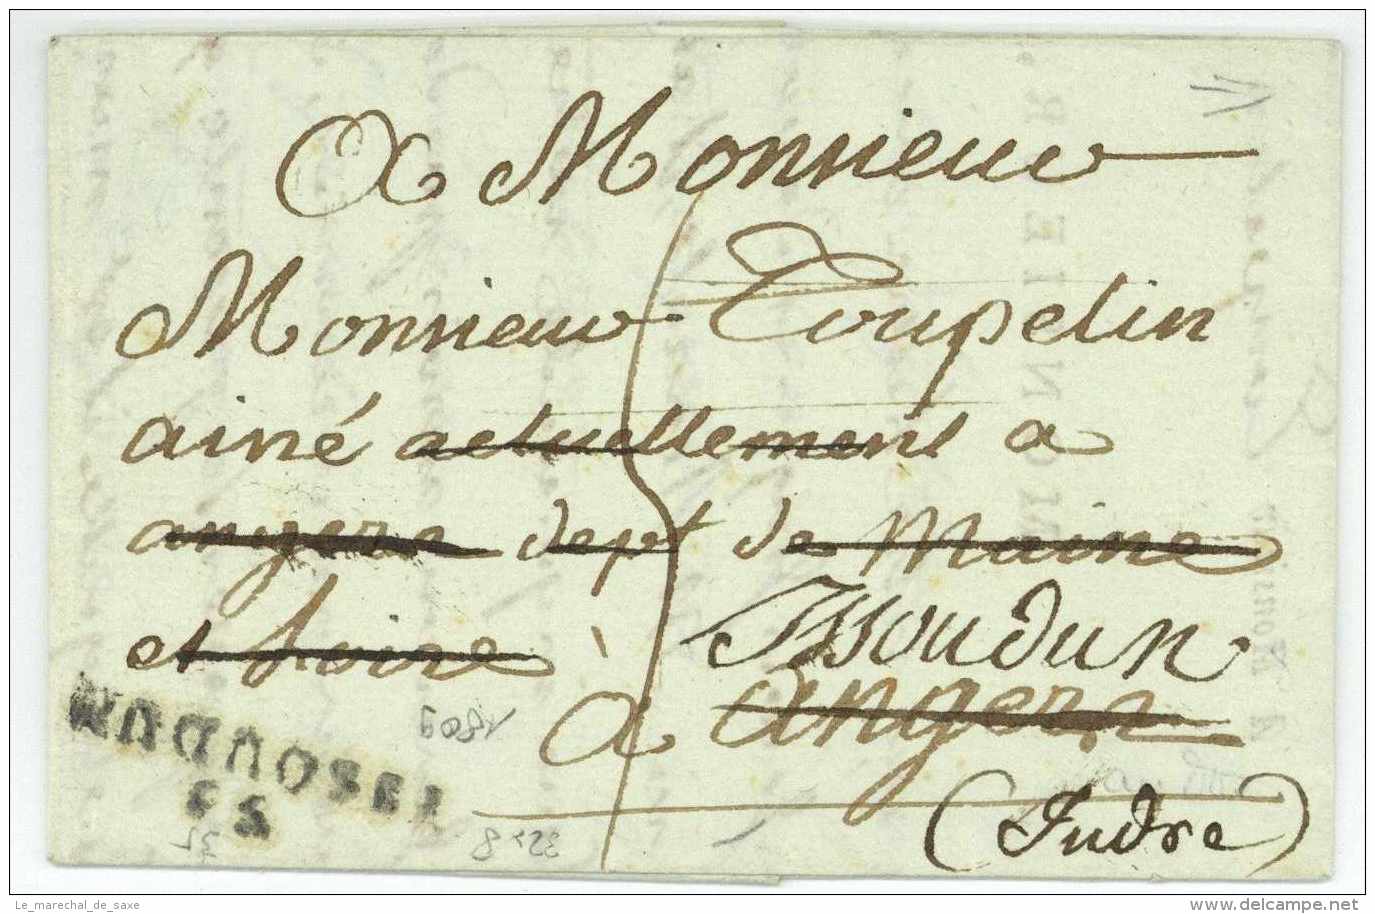 A Monsieur
Monsieur Toupelin
ainé actuellement a
angers dept de Maine
et Loire à Issoudun
a angers
(Indre)
ISSOUDUN
1809
Le_marechal_de_saxe
www.delcampe.net